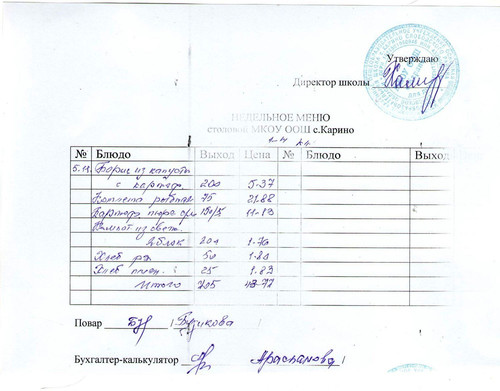 Утверждаю
Директор школы
НЕДЕЛЬНОЕ МЕНЮ
столовой МКОУ ООШ с.Карино
№ Блюдо Выход Цена № Блюдо Выход
5.11. Борщ из капусты
с картоф. 200 5-37
Котлета рыбная 75 21.88
Картоф. пюре 150/5 11-13
Компот из свеж.
яблок 200 1-70
Хлеб рж 50
Хлеб пшен. 25 1.82
Итого 705
Повар
Бухгалтер-калькулятор